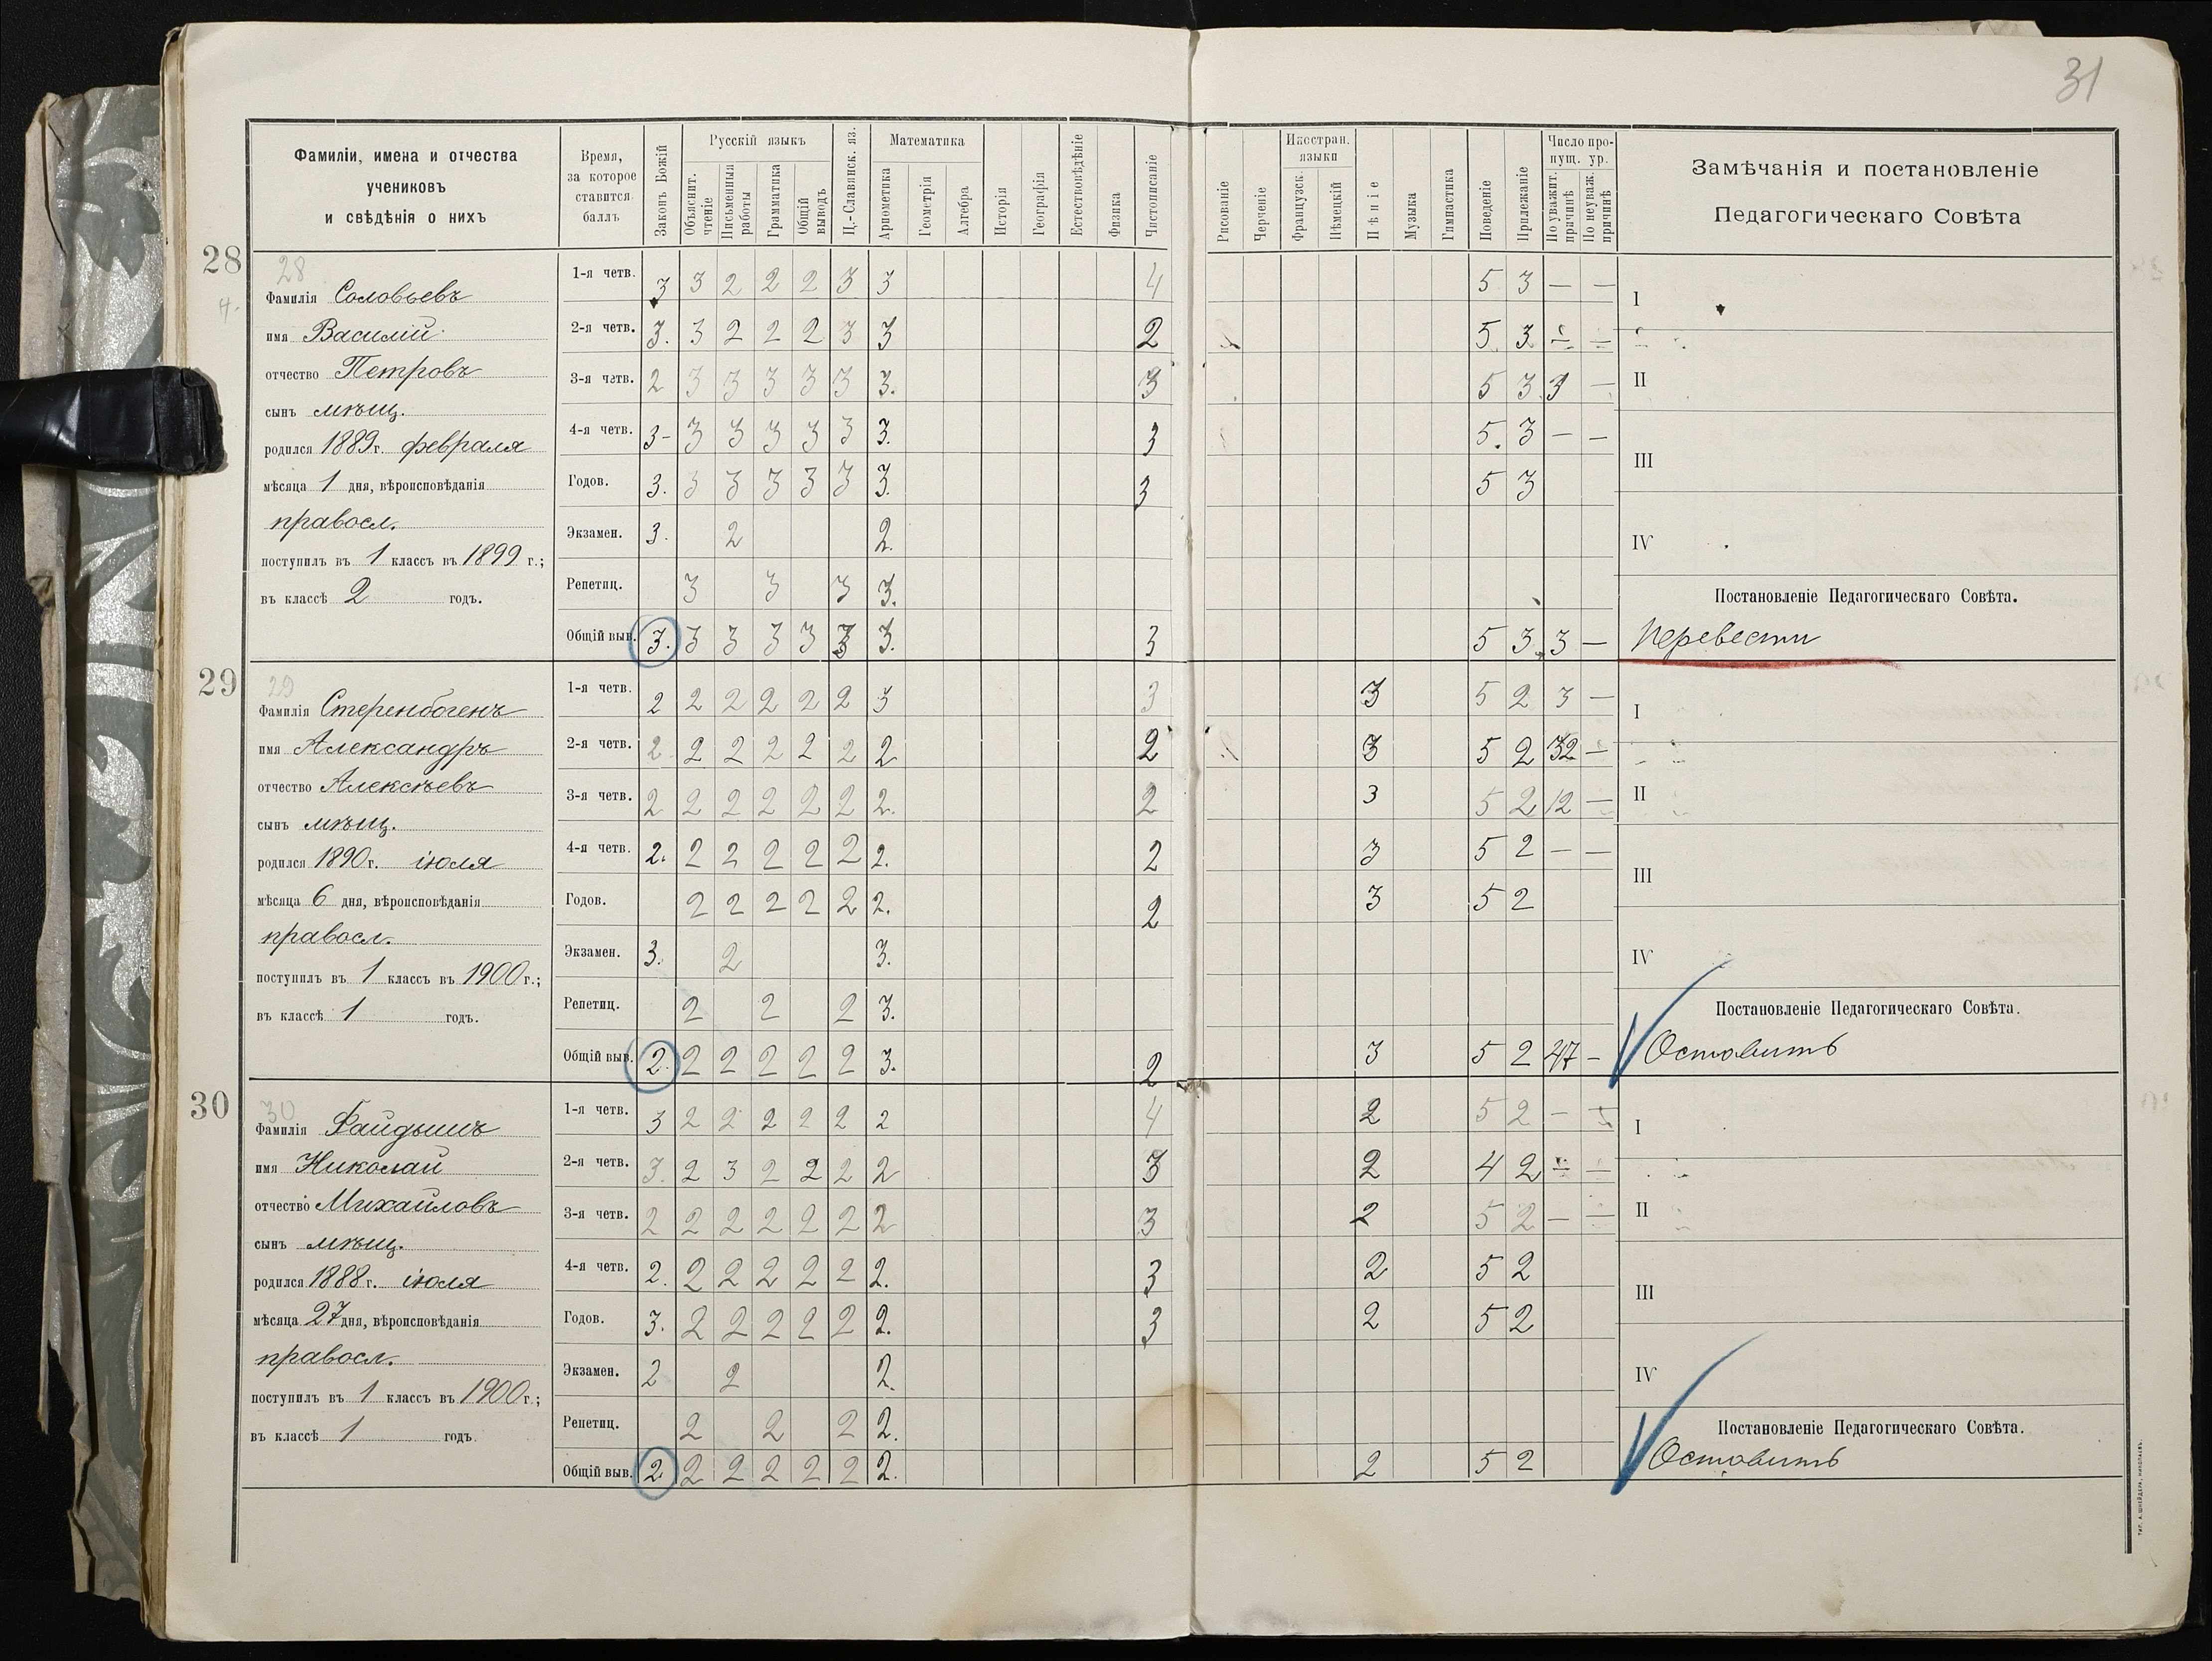 31
Фамиліи, имена и отчества
учениковъ
и свѣдѣнія о нихъ
Время,
за которое
ставится
баллъ
Законъ Божій
Русскій языкъ
Объяснит. чтеніе
Письменныя работы
Грамматика
Общій выводъ
Ц.-Славянск. яз.
Математика
Ариѳметика
Геометрія
Алгебра
Исторія
Географія
Естествовѣдѣніе
Физика
Чистописаніе
Рисованіе
Черченіе
Иностран. языки
Французск.
Нѣмецкій
Пѣніе
Музыка
Гимнастика
Поведеніе
Прилежаніе
Число пропущ. ур.
По уважит. причинѣ
По неуваж. причинѣ
Замѣчанія и постановленіе
Педагогическаго Совѣта
28
28
Фамилія Соловьевъ
имя Василій
отчество Петровъ
сынъ мѣщ.
родился 1889 г. февраля
мѣсяца 1 дня, вѣроисповѣданія
правосл.
поступилъ въ 1 классъ въ 1899 г.;
въ классѣ 2 годъ.
1-я четв. 3 3 2 2 2 3 3 4 5 3 — —
2-я четв. 3. 3 2 2 2 3 3 2 5 3 — —
3-я четв. 2 3 3 3 3 3 3. 3 5 3 3 —
4-я четв. 3- 3 3 3 3 3 3. 3 5. 3 — —
Годов. 3. 3 3 3 3 3 3. 3 5 3
Экзамен. 3. 2 2.
Репетиц. 3 3 3 3.
Общій выв. 3. 3 3 3 3 3 3. 3 5 3 3 —
I
II
III
IV
Постановленіе Педагогическаго Совѣта.
Перевести
29
29
Фамилія Стеренбогенъ
имя Александръ
отчество Алексѣевъ
сынъ мѣщ.
родился 1890 г. іюля
мѣсяца 6 дня, вѣроисповѣданія
правосл.
поступилъ въ 1 классъ въ 1900 г.;
въ классѣ 1 годъ.
1-я четв. 2 2 2 2 2 2 3 3 3 5 2 3 —
2-я четв. 2 2 2 2 2 2 2 2 3 5 2 32 —
3-я четв. 2 2 2 2 2 2 2. 2 3 5 2 12 —
4-я четв. 2. 2 2 2 2 2 2. 2 3 5 2 — —
Годов. 2 2 2 2 2 2. 2 3 5 2
Экзамен. 3. 2 3.
Репетиц. 2 2 2 3.
Общій выв. 2. 2 2 2 2 2 3. 2 3 5 2 47 —
I
II
III
IV
Постановленіе Педагогическаго Совѣта.
Оставить
30
30
Фамилія Файдышъ
имя Николай
отчество Михайловъ
сынъ мѣщ.
родился 1888 г. іюля
мѣсяца 27 дня, вѣроисповѣданія
правосл.
поступилъ въ 1 классъ въ 1900 г.;
въ классѣ 1 годъ
1-я четв. 3 2 2 2 2 2 2 4 2 5 2 —
2-я четв. 3. 2 3 2 2 2 2 3 2 4 2 — —
3-я четв. 2 2 2 2 2 2 2 3 2 5 2 — —
4-я четв. 2. 2 2 2 2 2 2. 3 2 5 2
Годов. 3. 2 2 2 2 2 2. 3 2 5 2
Экзамен. 2 2 2.
Репетиц. 2 2 2 2.
Общій выв. 2 2 2 2 2 2 2. 2 5 2
I
II
III
IV
Постановленіе Педагогическаго Совѣта.
Оставить
ТИП. А. ШНЕЙДЕРА, НИКОЛАЕВЪ.